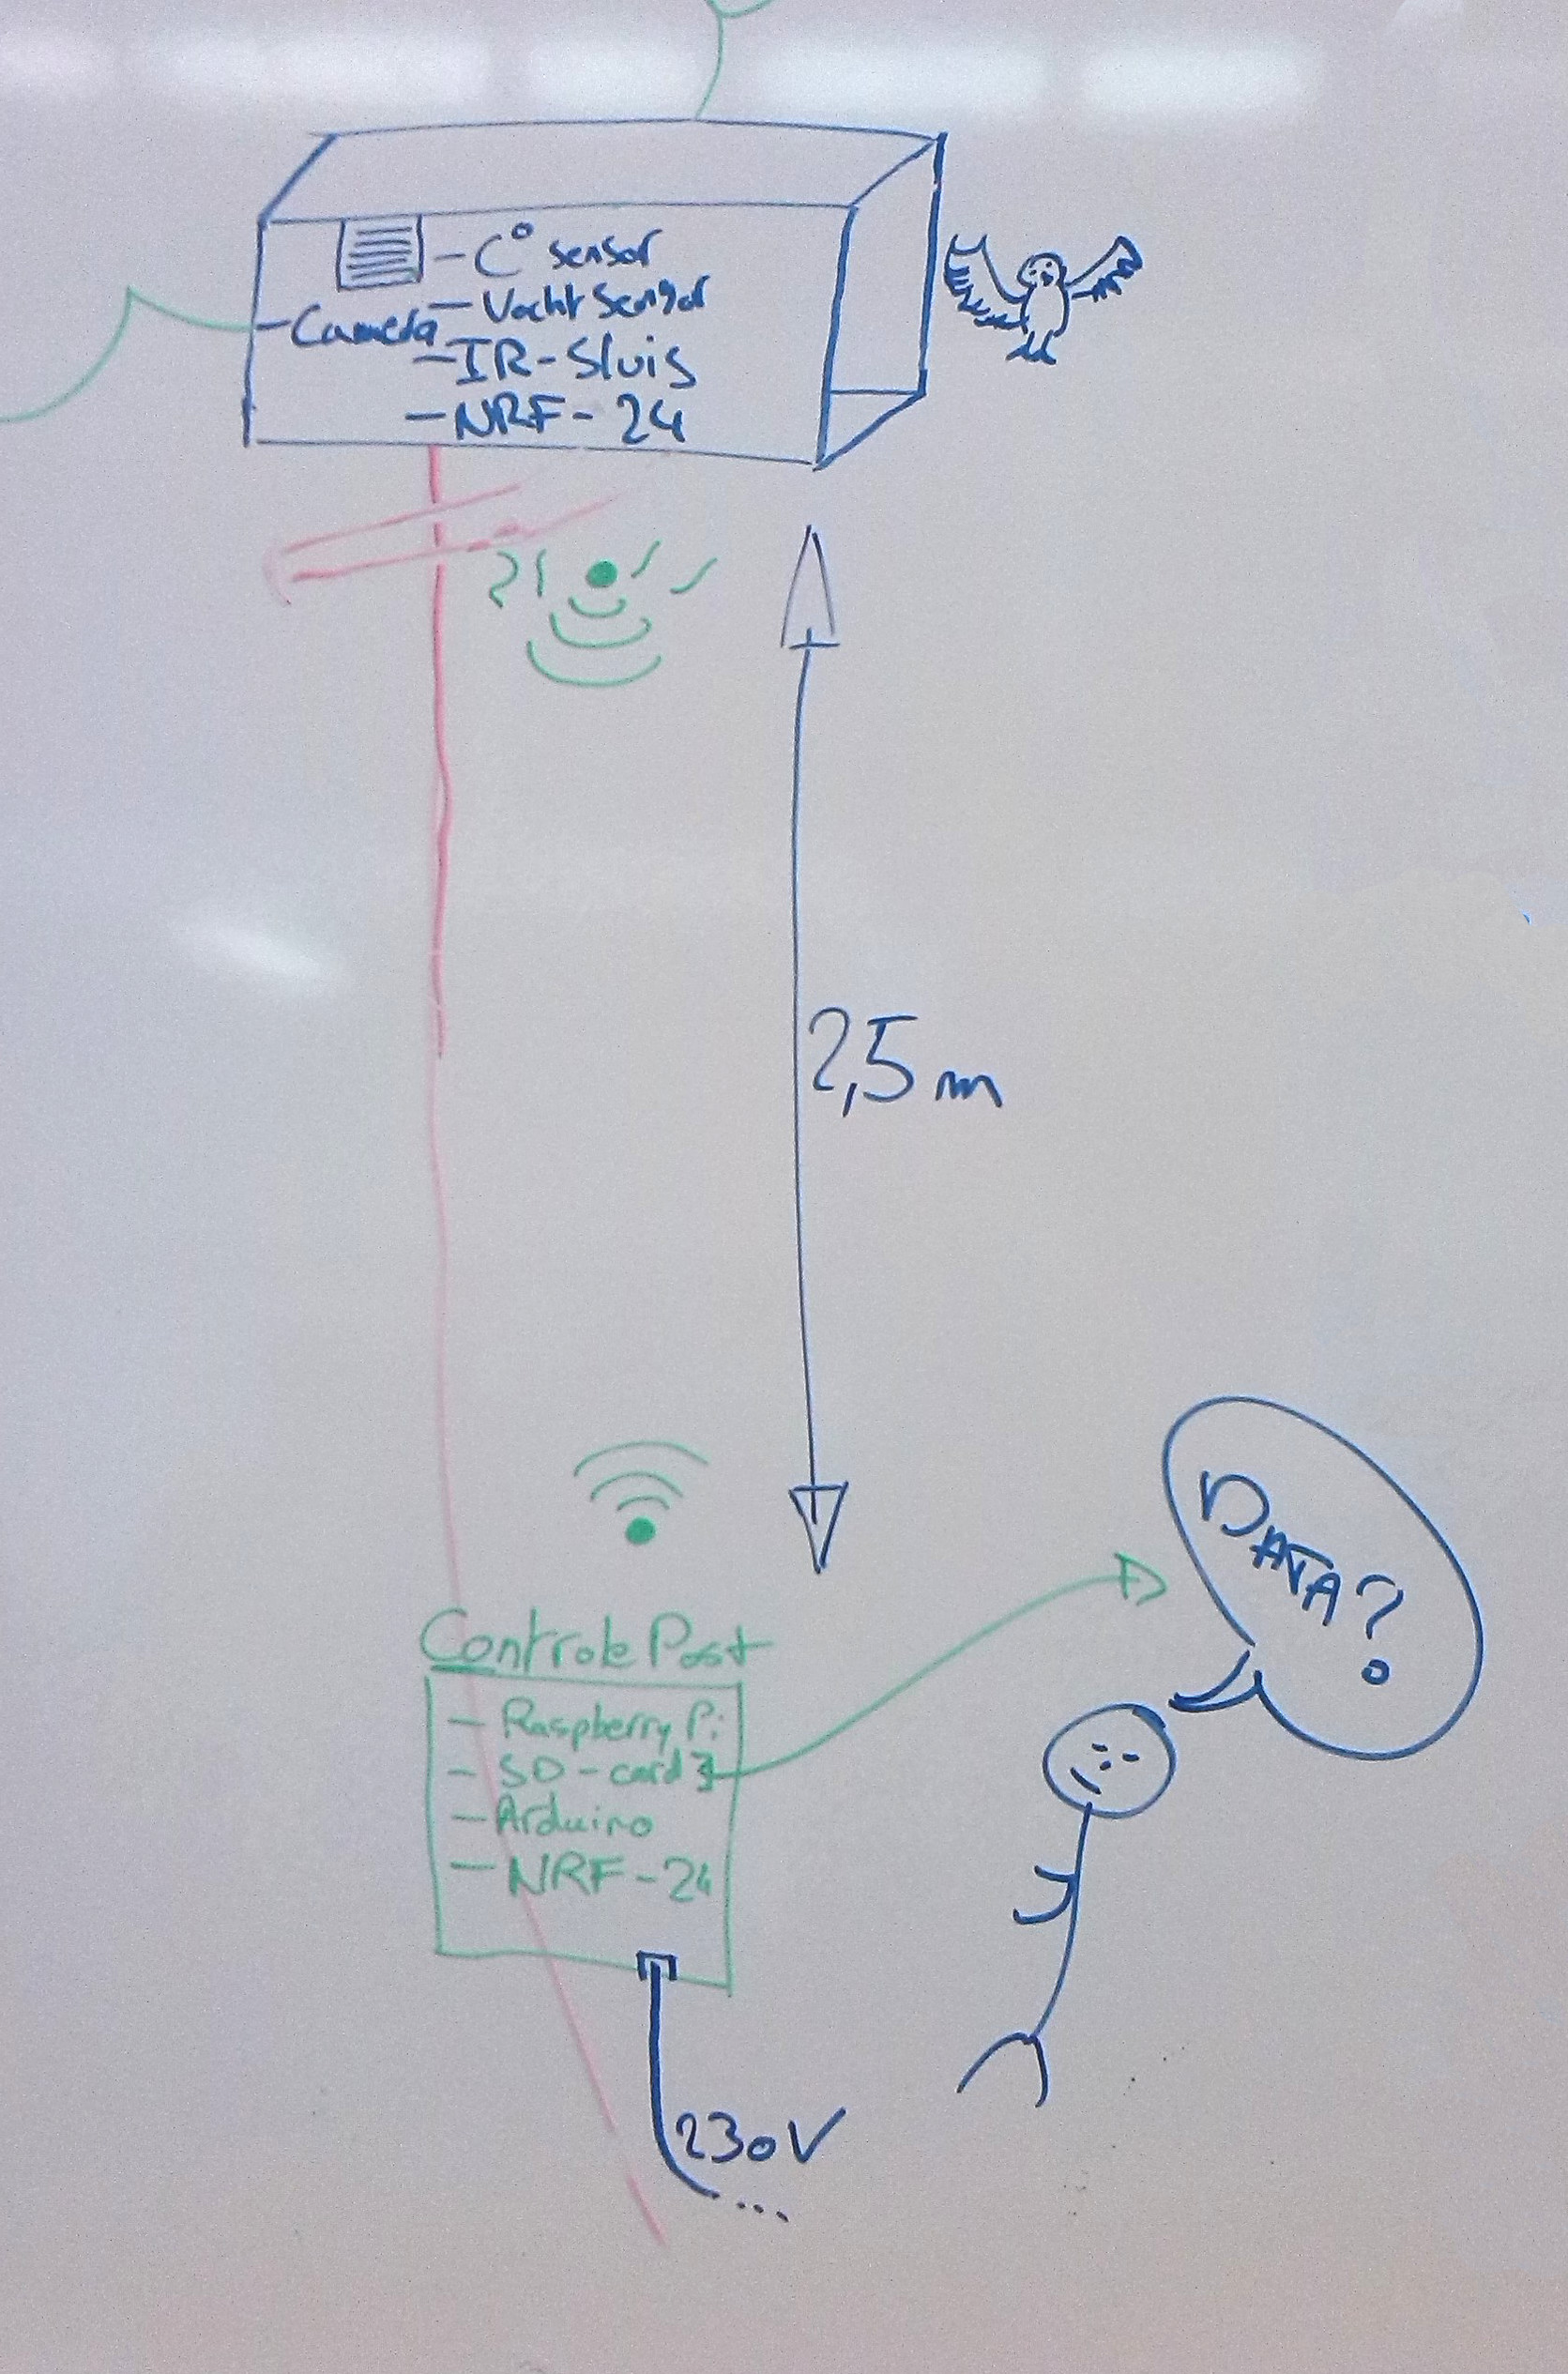 - C° sensor
- Vocht Sensor
- Camera
- IR-Sluis
- NRF-24
2,5 m
DATA?
Controle Post
- Raspberry Pi
- SD-card
- Arduino
- NRF-24
230V
...